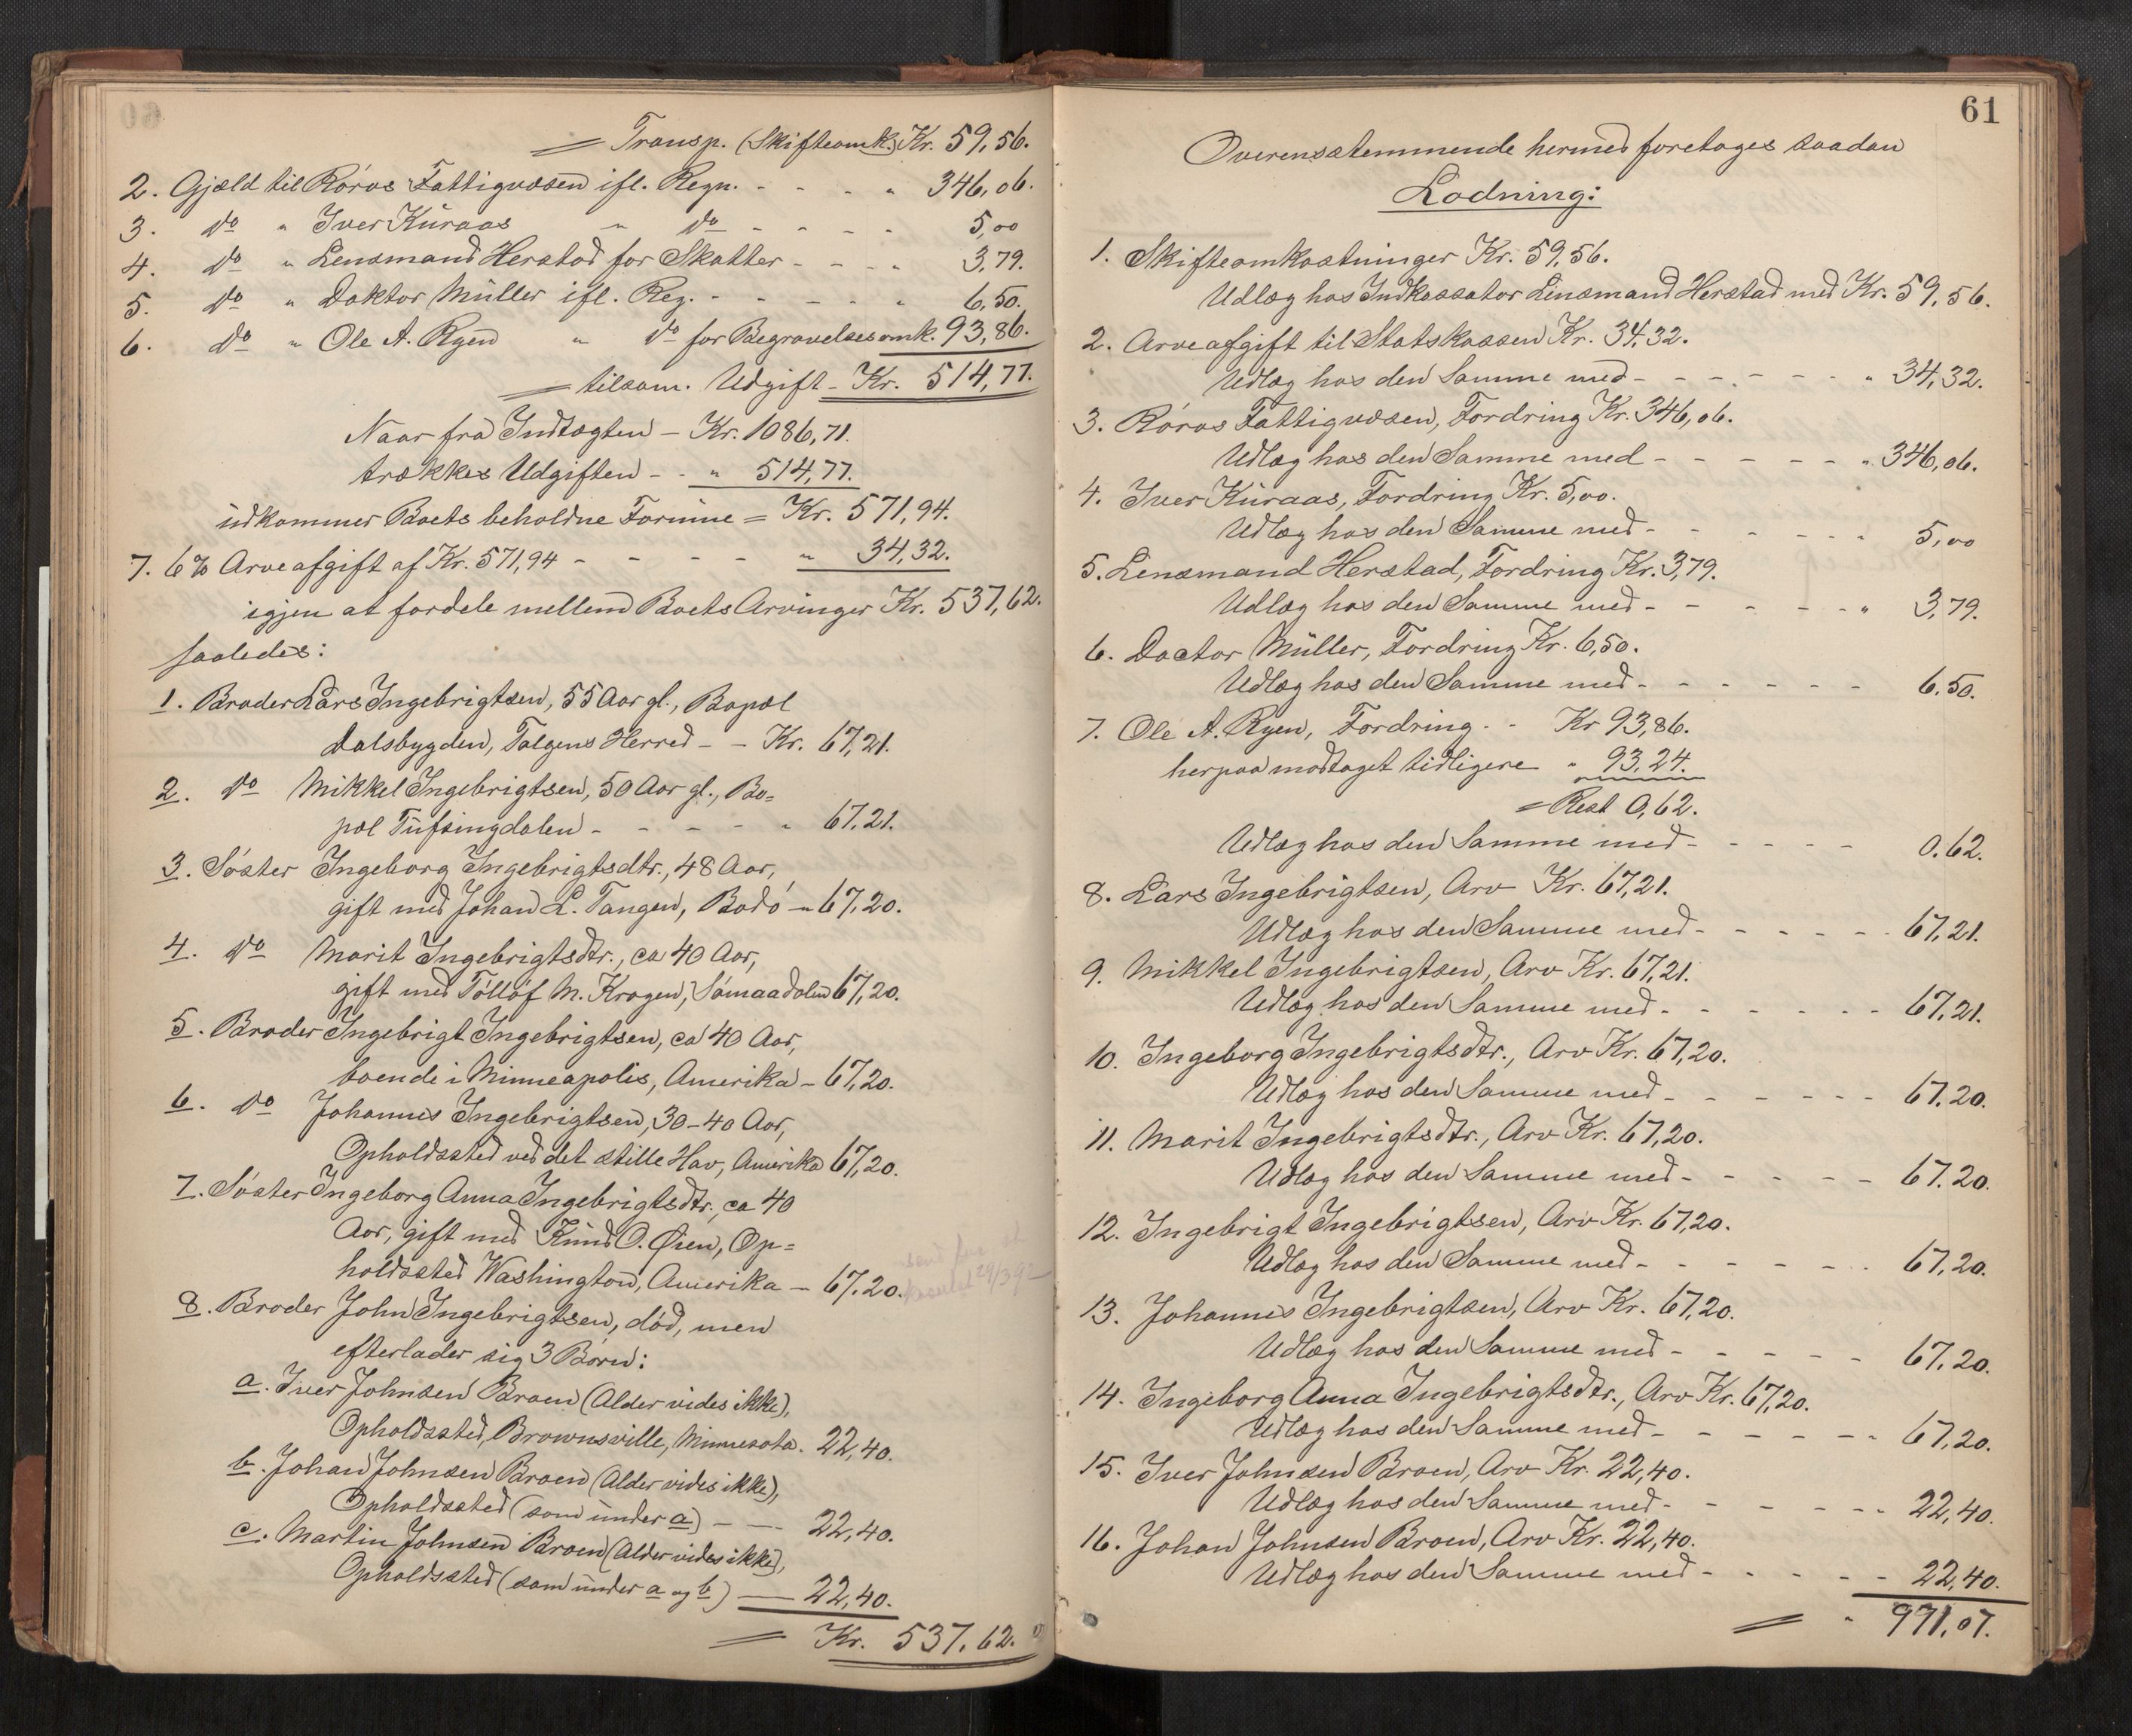 60
= Transp. (Skifteomk.) Kr. 59,56.
2. Gjæld til Röros Fattigvæsen ifl. Regn. - - - - " 346,06.
3. do " Iver Küraas " do - - - - - 5,00
4. do " Lensmand Herstad for Skatter - - - - " 3,79.
5. do " Doktor Müller ifl. Reg. - - - - - " 6,50.
6. do " Ole A. Ryen " do for Begravelsesomk. 93,86.
= tilsam. Udgift - Kr. 514,77.
Naar fra Indtægten - Kr. 1086,71.
trækkes Udgiften - - " 514,77.
udkommer Boets beholdne Formue = Kr. 571,94.
7. 6% Arveafgift af Kr. 571,94 - - - - - " 34,32.
igjen at fordele mellem Boets Arvinger Kr. 537,62.
saaledes:
1. Broder Lars Ingebrigtsen, 55 Aar gl., Bopæl
Dalsbygden, Tolgens Herred - - Kr. 67,21.
2. do Mikkel Ingebrigtsen, 50 Aar gl., Bo=
pæl Tufsingdalen - - - - - " 67,21.
3. Söster Ingeborg Ingebrigtsdtr., 48 Aar,
gift med Johan L. Tangen, Bodö - " 67,20.
4. do Marit Ingebrigtsdtr., ca 40 Aar,
gift med Töllöf M. Krogen, Sömaadalen 67,20.
5. Broder Ingebrigt Ingebrigtsen, ca 40 Aar,
boende i Minneapolis, Amerika - 67,20.
6. do Johannes Ingebrigtsen, 30-40 Aar,
Opholdssted ved det stille Hav, Amerika 67,20.
7. Söster Ingeborg Anna Ingebrigtsdtr., ca 40
Aar, gift med Knud O. Øien, Op=
holdssted Washington, Amerika - 67,20.
8. Broder John Ingebrigtsen, död, men
efterlader sig 3 Börn:
a. Iver Johnsen Broen (Alder vides ikke),
Opholdssted, Brownsville, Minnesota. 22,40.
b. Johan Johnsen Broen (Alder vides ikke),
Opholdssted (som under a) - - 22,40.
c. Martin Johnsen Broen (Alder vides ikke),
Opholdssted (som under a og b) - 22,40.
= Kr. 537,62.
61
Overensstemmende hermed foretages saadan
Lodning:
1. Skifteomkostninger Kr. 59,56.
Udlæg hos Indkassator Lensmand Herstad med Kr. 59,56.
2. Arveafgift til Statskassen Kr. 34,32.
Udlæg hos den Samme med - - - - - - " 34,32.
3. Röros Fattigvæsen, Fordring Kr. 346,06.
Udlæg hos den Samme med - - - - - - " 346,06.
4. Iver Küraas, Fordring Kr. 5,00.
Udlæg hos den Samme med - - - - - - 5,00
5. Lensmand Herstad, Fordring Kr. 3,79.
Udlæg hos den Samme med - - - - - - " 3,79.
6. Doctor Müller, Fordring Kr. 6,50.
Udlæg hos den Samme med - - - - - - 6.50.
7. Ole A. Ryen, Fordring - - Kr 93,86.
herpaa modtaget tidligere " 93,24.
= Rest 0,62.
Udlæg hos den Samme med - - - - - 0.62.
8. Lars Ingebrigtsen, Arv Kr. 67,21.
Udlæg hos den Samme med - - - - - - 67,21.
9. Mikkel Ingebrigtsen, Arv Kr. 67,21.
Udlæg hos den Samme med - - - - - - 67,21.
10. Ingeborg Ingebrigtsdtr., Arv Kr. 67,20.
Udlæg hos den Samme med - - - - - - 67.20.
11. Marit Ingebrigtsdtr., Arv Kr. 67,20.
Udlæg hos den Samme med - - - - - - 67.20.
12. Ingebrigt Ingebrigtsen, Arv Kr. 67,20.
Udlæg hos den Samme med - - - - - - 67,20.
13. Johannes Ingebrigtsen, Arv Kr. 67,20.
Udlæg hos den Samme med - - - - - 67,20.
14. Ingeborg Anna Ingebrigtsdtr., Arv Kr. 67,20.
Udlæg hos den Samme med - - - - - - 67,20.
15. Iver Johnsen Broen, Arv Kr. 22,40.
Udlæg hos den Samme med - - - - - - 22,40.
16. Johan Johnsen Broen, Arv Kr. 22,40.
Udlæg hos den Samme med - - - - - 22,40.
= " 971,07.